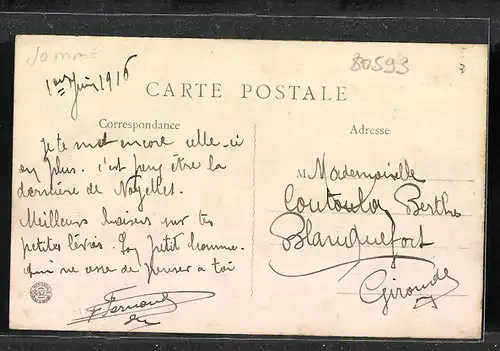 Somme
80593
1er Juin 1916
CARTE POSTALE
Correspondance
Je te met encore celle ci
en plus. c'est peut être la
dernière de Noyelles.
Meilleurs baisers sur tes
petites lèvres. Ton petit homme
qui ne cesse de penser a toi
Fernand
Adresse
M Mademoiselle
Coutoula Berthe
Blanquefort
Gironde